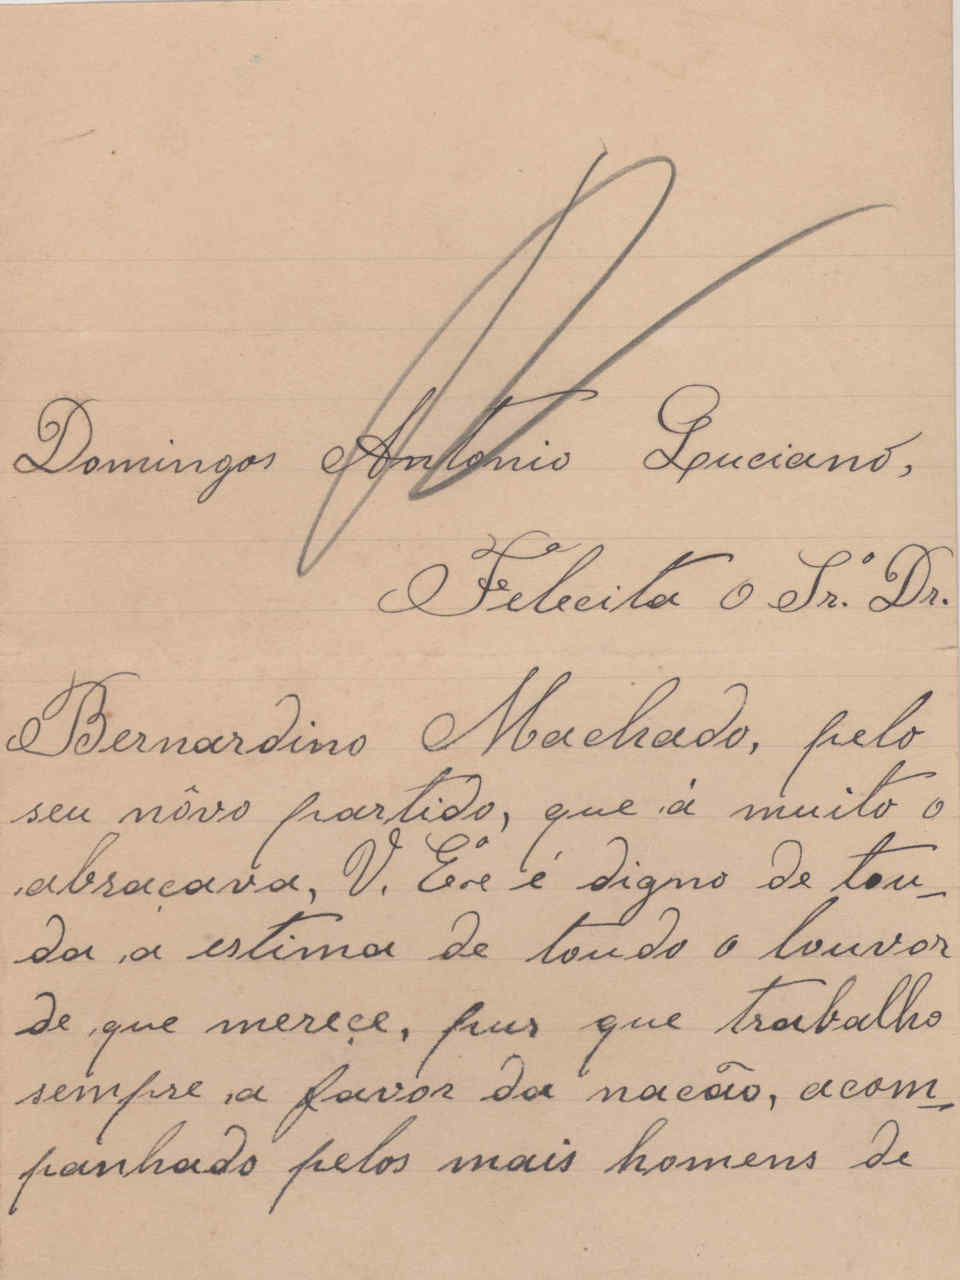 Domingos Antonio Luciano,
Felecita o Sr.º Dr.
Bernardino Machado, pelo
seu nôvo partido, que á muito o
abraçava, V. Eª.e é digno de tou-
da a estima de toudo o louvor
de que mereçe, pur que trabalho
sempre a favor da nacão, acom-
panhado pelos mais homens de